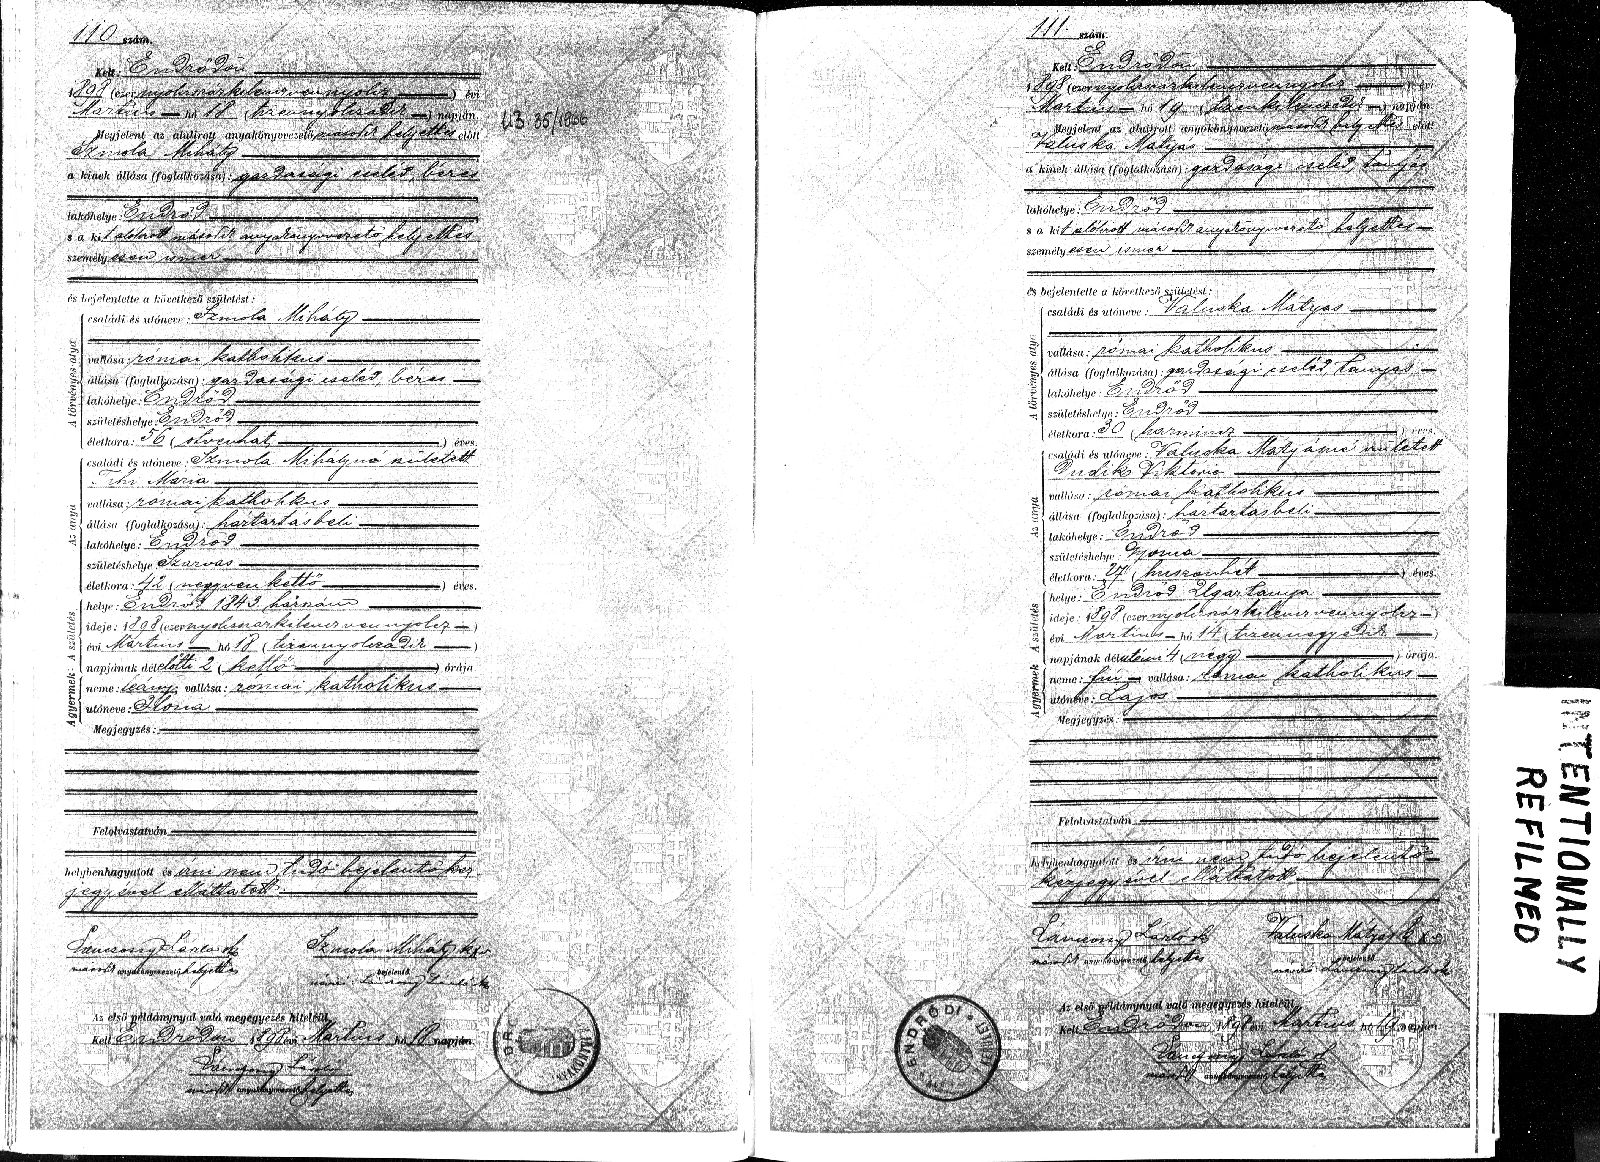 110 szám.
Kelt: Endrődön
1898 (ezernyolcszázkilencvennyolcz) évi
Martius hó 18 (tizennyolcadik) napján.
Megjelent az alulirott anyakönyvvezető második helyettes előtt
Szmola Mihály
a kinek állása (foglalkozása): gazdasági cseléd, béres
lakóhelye: Endrőd
s a kit alólirott második anyakönyvvezető helyettes
személyesen ismer
és bejelentette a következő születést:
A törvényes atya
családi és utóneve: Szmola Mihály
vallása: római katholikus
állása (foglalkozása): gazdasági cseléd, béres
lakóhelye: Endrőd
születéshelye: Endrőd
életkora: 56 (ötvenhat) éves.
Az anya
családi és utóneve: Szmola Mihályné született
Mária
vallása: római katholikus
állása (foglalkozása): háztartásbeli
lakóhelye: Endrőd
születéshelye Szarvas
életkora: 42 (negyvenkettő) éves.
A gyermek: A születés
helye: Endrőd 1843 házszám
ideje: 1898 (ezernyolcszázkilencvennyolcz)
évi Mártius hó 18 (tizennyolcadik)
napjának délelőtti 2 (kettő) órája
neme: leány vallása: római katholikus
utóneve: Ilona
Megjegyzés:
Felolvastatván
helybenhagyatott és írni nem tudó bejelentő kéz
jegyével elláttatott
második anyakönyvvezető helyettes
Szmola Mihály
bejelentő
Az első példánynyal való megegyezés hiteléül.
Kelt Endrődön 1898 évi Martius hó 18 napján
második anyakönyvvezető helyettes
35/1866
111. szám.
Kelt: Endrődön
1898 (ezernyolcszázkilencvennyolcz) évi
Martius hó 19 (tizenkilencedik) napján.
Megjelent az alulirott anyakönyvvezető második helyettes előtt
Valuska Mátyás
a kinek állása (foglalkozása): gazdasági cseléd, tanyás
lakóhelye: Endrőd
s a kit alólirott második anyakönyvvezető helyettes
személyesen ismer
és bejelentette a következő születést:
A törvényes atya
családi és utóneve: Valuska Mátyás
vallása: római katholikus
állása (foglalkozása): gazdasági cseléd, tanyás
lakóhelye: Endrőd
születéshelye: Endrőd
életkora: 30 (harmincz) éves.
Az anya
családi és utóneve: Valuska Mátyásné született
Dudik Viktoria
vallása: római katholikus
állása (foglalkozása): háztartásbeli
lakóhelye: Endrőd
születéshelye Gyoma
életkora: 27 (huszonhét) éves.
A gyermek: A születés
helye: Endrőd Ugartanya
ideje: 1898 (ezernyolcszázkilencvennyolcz)
évi Martius hó 14 (tizennegyedik)
napjának délutáni 4 (négy) órája.
neme: fiú vallása: római katholikus
utóneve: Lajos
Megjegyzés:
Felolvastatván
helybenhagyatott és írni nem tudó bejelentő
kézjegyével elláttatott
második anyakönyvvezető helyettes
Valuska Mátyás
bejelentő
Az első példánynyal való megegyezés hiteléül.
Kelt Endrődön 1898 évi Martius hó 19 napján
második anyakönyvvezető helyettes
ENDRŐDI
INTENTIONALLY
REFILMED